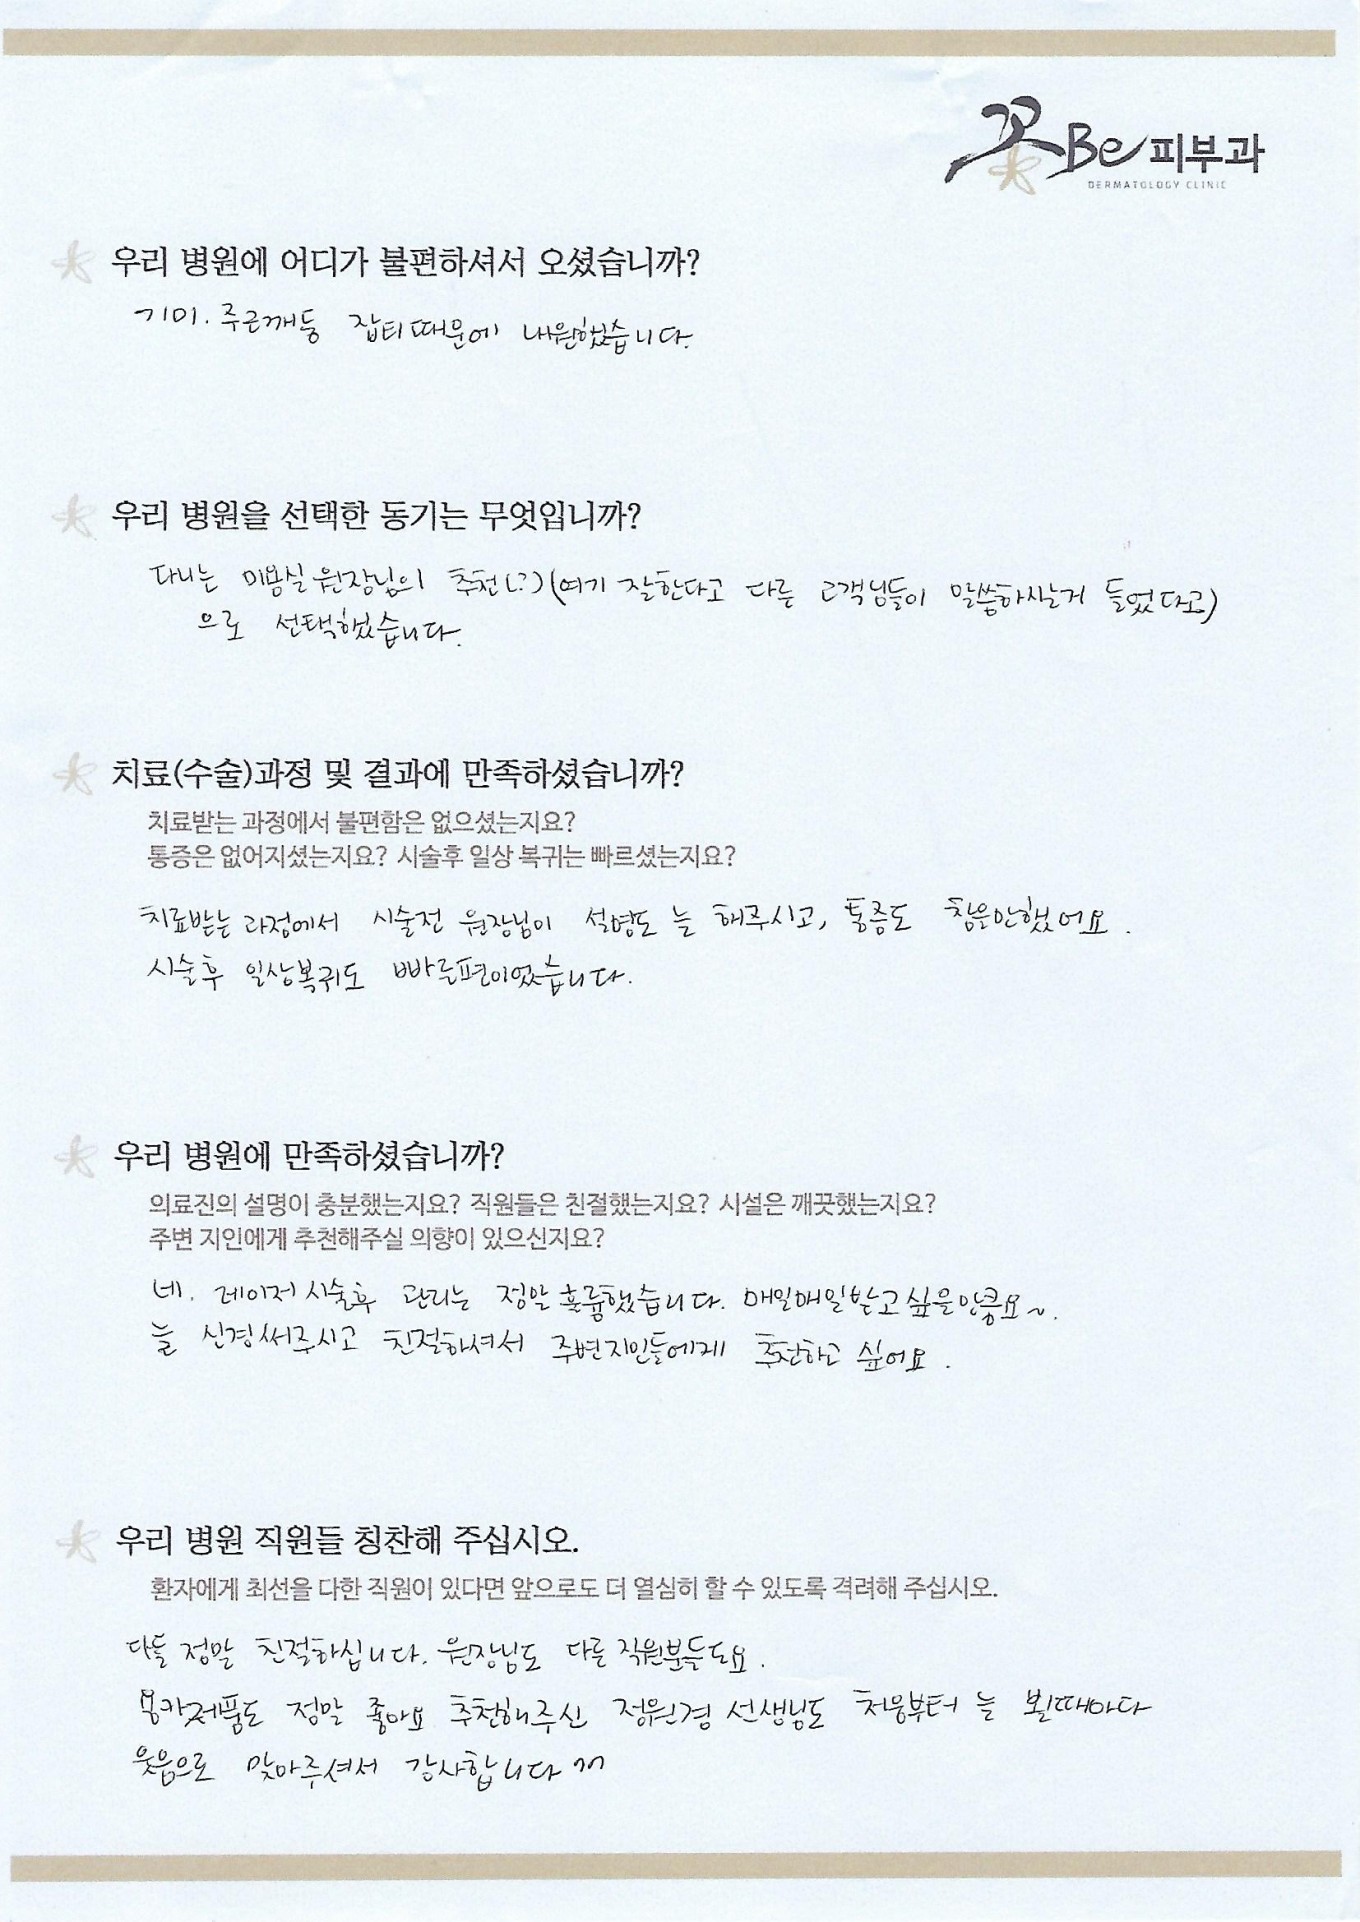 꽃Be피부과
DERMATOLOGY CLINIC
우리 병원에 어디가 불편하셔서 오셨습니까?
기미. 주근깨등 잡티때문에 내원했습니다.
우리 병원을 선택한 동기는 무엇입니까?
다니는 미용실 원장님의 추천(?)(여기 잘한다고 다른 고객님들이 말씀하시는거 들었다고)
으로 선택했습니다.
치료(수술)과정 및 결과에 만족하셨습니까?
치료받는 과정에서 불편함은 없으셨는지요?
통증은 없어지셨는지요? 시술후 일상 복귀는 빠르셨는지요?
치료받는 과정에서 시술전 원장님이 설명도 늘 해주시고, 통증도 참을만했어요.
시술후 일상복귀도 빠른편이었습니다.
우리 병원에 만족하셨습니까?
의료진의 설명이 충분했는지요? 직원들은 친절했는지요? 시설은 깨끗했는지요?
주변 지인에게 추천해주실 의향이 있으신지요?
네. 레이저 시술후 관리는 정말 훌륭했습니다. 매일매일받고싶을만큼요~.
늘 신경써주시고 친절하셔서 주변지인들에게 추천하고 싶어요.
우리 병원 직원들 칭찬해 주십시오.
환자에게 최선을 다한 직원이 있다면 앞으로도 더 열심히 할 수 있도록 격려해 주십시오.
다들 정말 친절하십니다. 원장님도 다른 직원분들도요.
제품도 정말 좋아요 추천해주신 정원경 선생님도 처음부터 늘 볼때마다
웃음으로 맞아주셔서 감사합니다 ^^